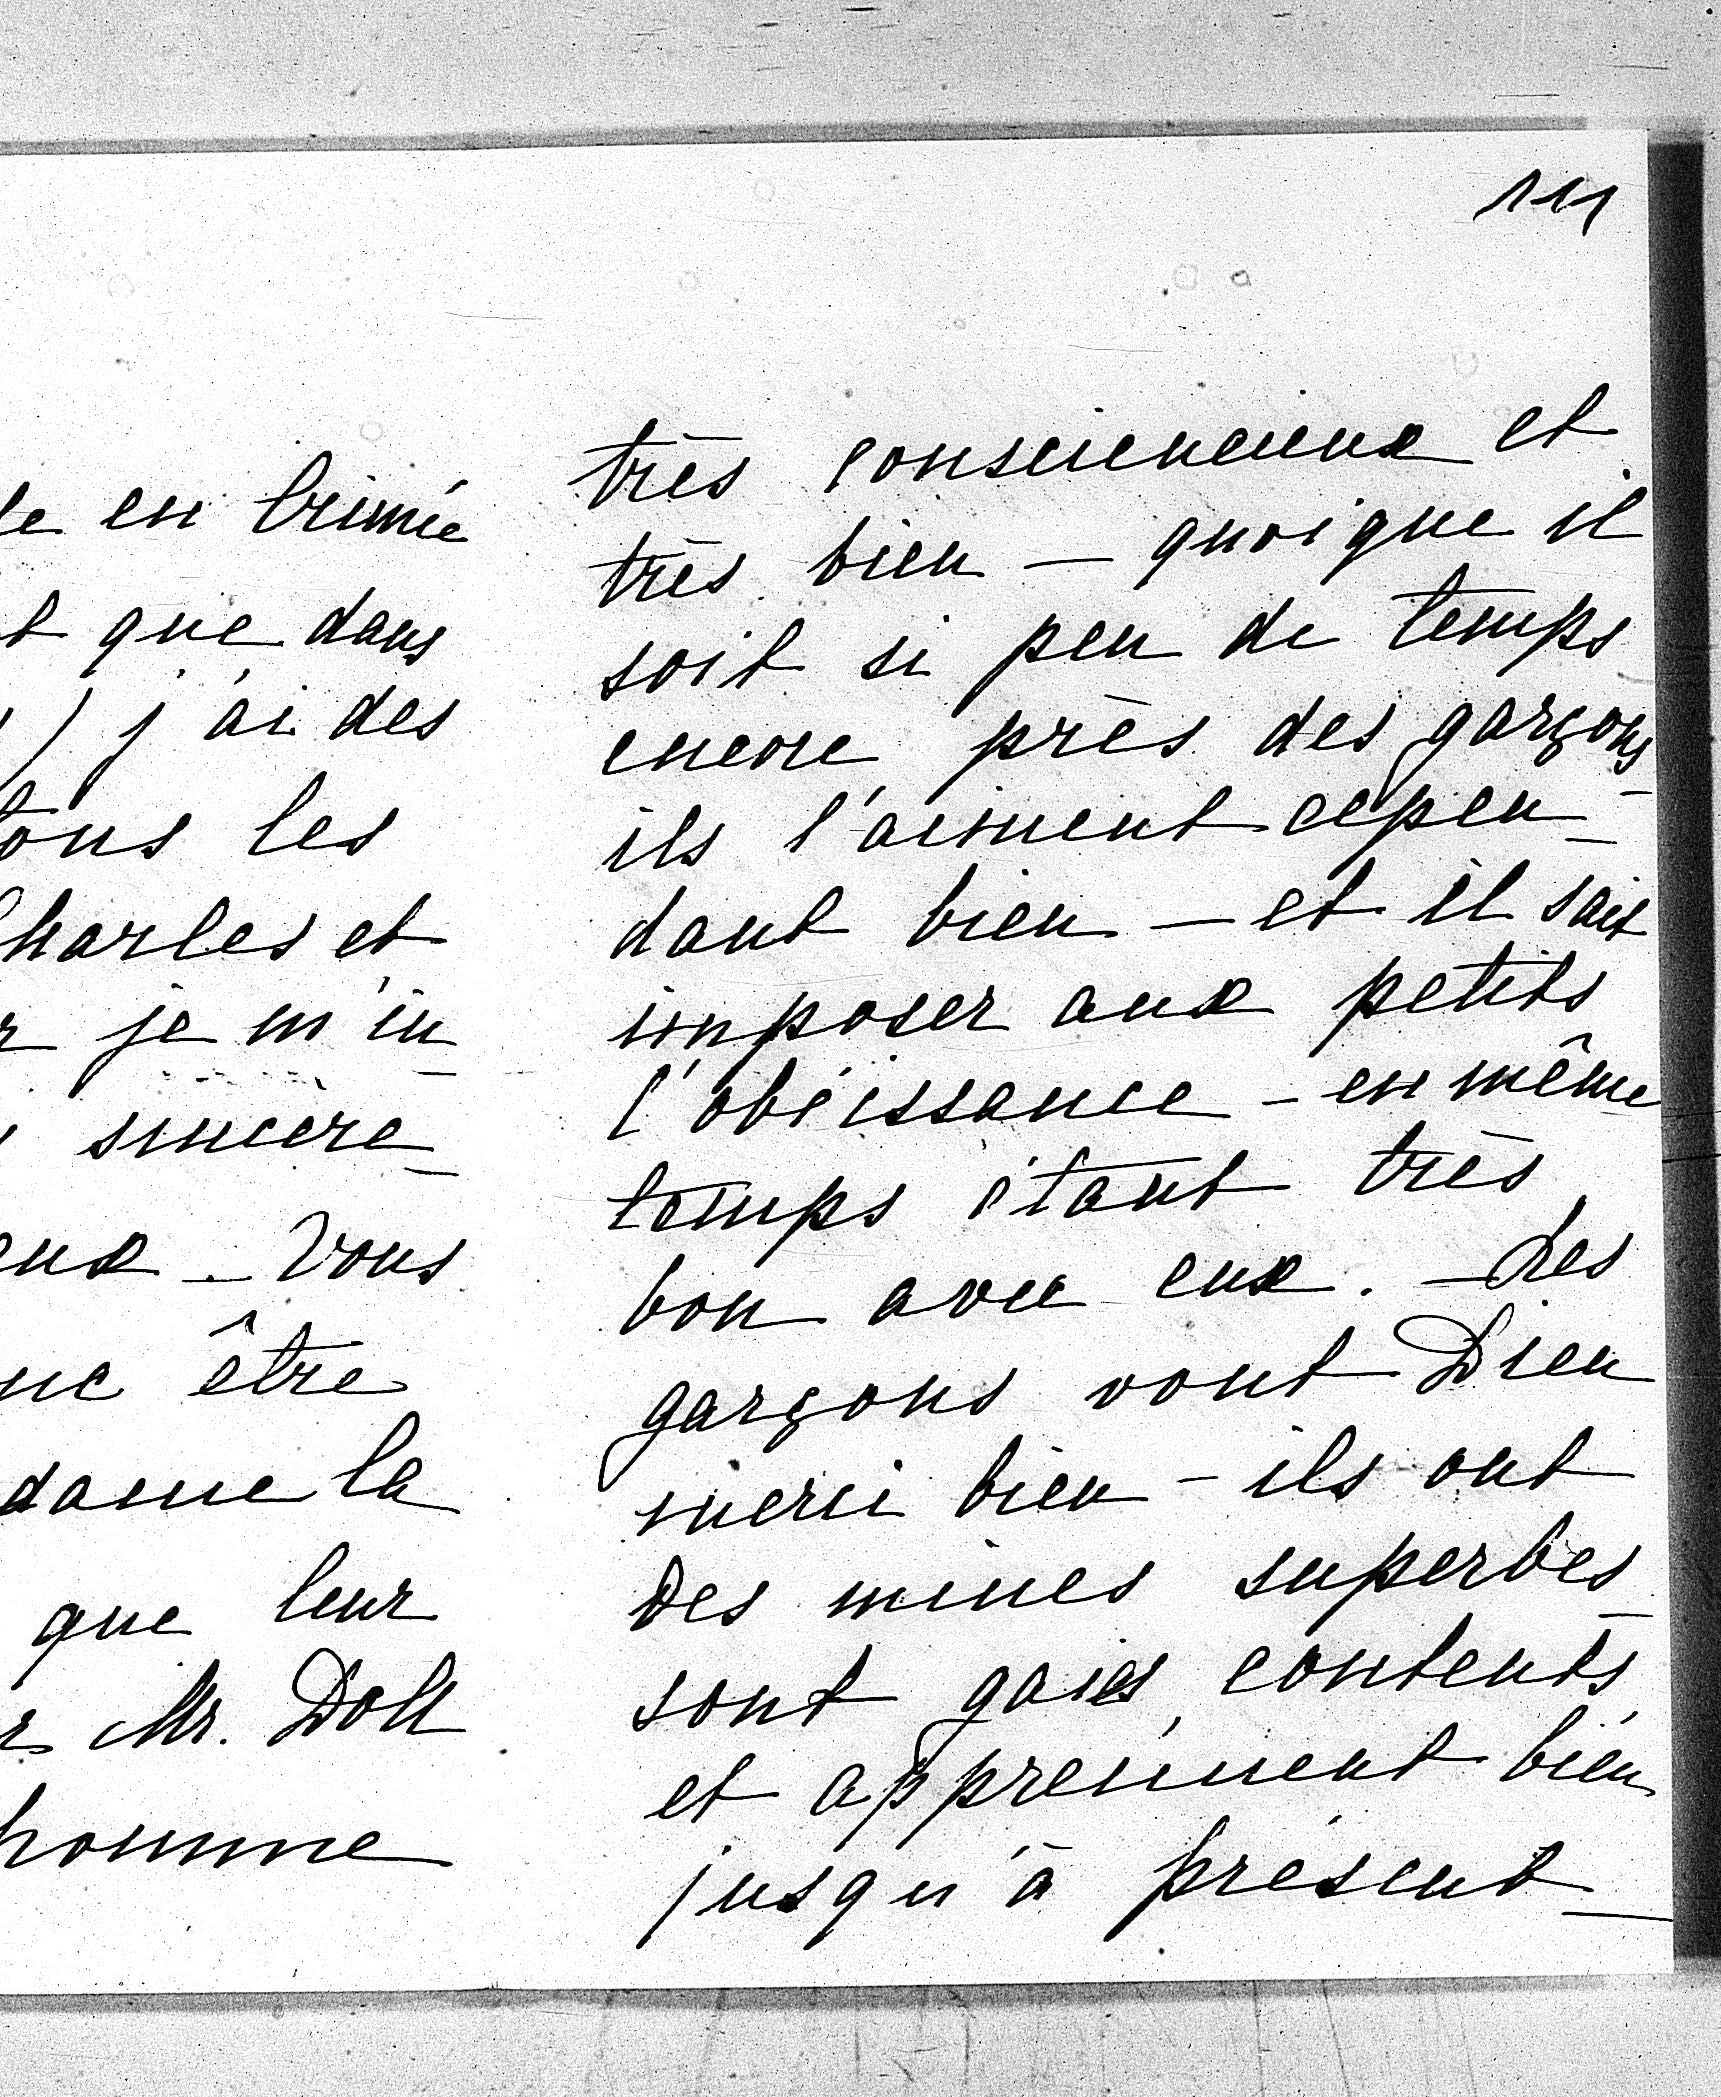 111
le en Crimée
t que dans
) j'ai des
tous les
Charles et
r je m'in_
sincère_
eux _ Vous
être
dame la
que leur
Mr. Doll
homme
très consciencieux et
très bien — quoique il
soit si peu de temps
encore près des garçons
ils l'aiment cepen_
dant bien — et il sait
imposer aux petits
l'obéissance - en même
temps étant très
bon avec eux. — Les
garçons vont Dieu
merci bien - ils ont
des mines superbes
sont gaies, contents
et apprennent bien
jusqu'à présent _